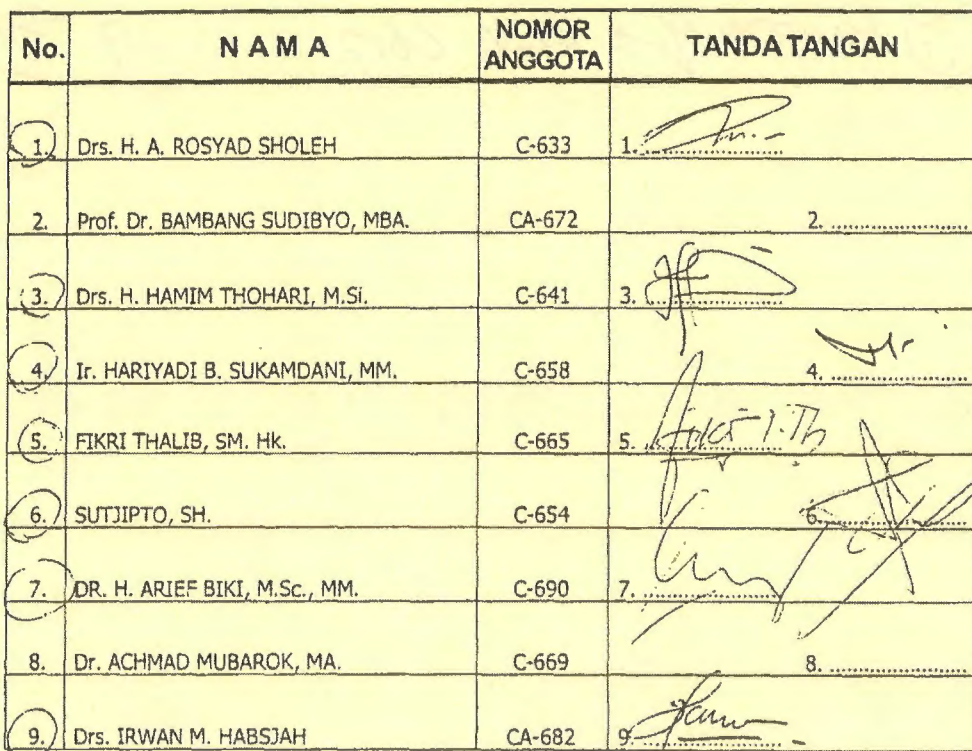 No. N A M A NOMOR ANGGOTA TANDA TANGAN
1. Drs. H. A. ROSYAD SHOLEH C-633 1. ..............
2. Prof. Dr. BAMBANG SUDIBYO, MBA. CA-672 2. ..............
3. Drs. H. HAMIM THOHARI, M.Si. C-641 3. ..............
4. Ir. HARIYADI B. SUKAMDANI, MM. C-658 4. ..............
5. FIKRI THALIB, SM. Hk. C-665 5. ..............
6. SUTJIPTO, SH. C-654 6. ..............
7. DR. H. ARIEF BIKI, M.Sc., MM. C-690 7. ..............
8. Dr. ACHMAD MUBAROK, MA. C-669 8. ..............
9. Drs. IRWAN M. HABSJAH CA-682 9. ..............